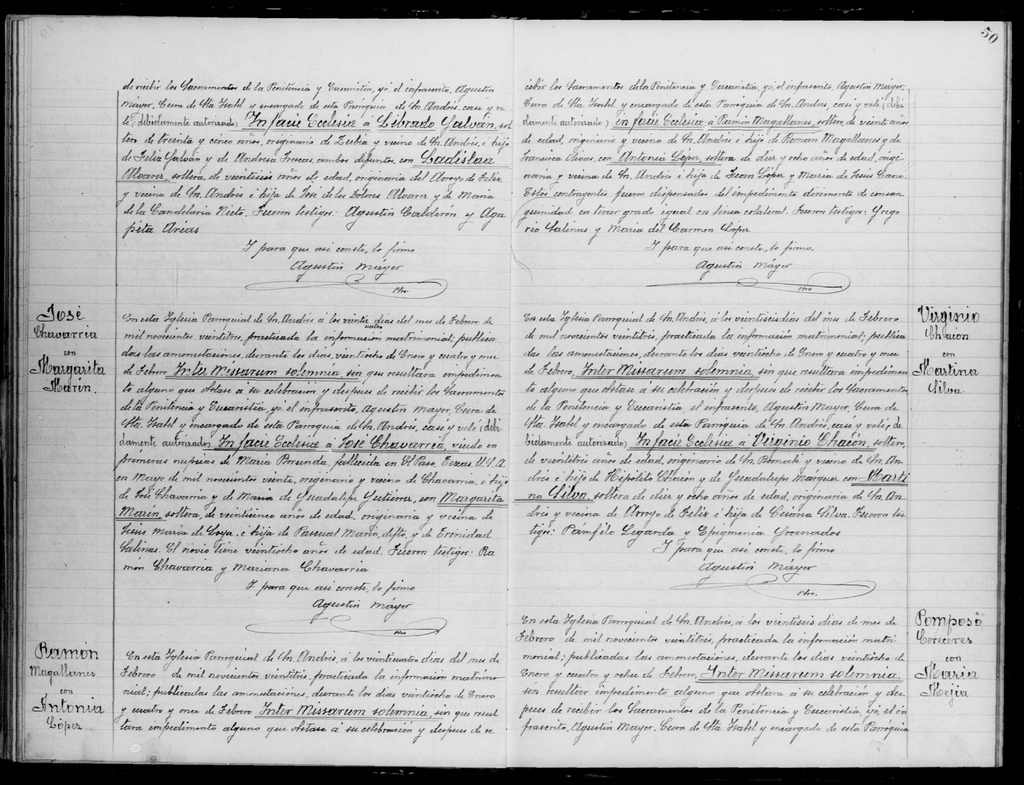 de recibir los Sacramentos de la Penitencia y Eucaristia, yó el infrascrito, Agustin
Máyer, Cura de Sta Isabel y encargado de esta Parroquia de Sn. Andrés, casé y ve
lé; debidamente autorizado; In facie Ecclesiæ á Librado Galván, sol
tero de treinta y cinco años, originario de Zubia y vecino de Sn. Andrés, é hijo
de Feliz Galván y de Andrea Frescas, ambos difuntos, con Ladislaa
Alvarez, soltera, de veintiseis años de edad, originaria del Arroyo de Feliz
y vecina de Sn. Andrés é hija de José de los Dolores Alvarez y de Maria
de la Candelaria Nieto. Fueron testigos: Agustin Calderón y Aga
pita Areas
I para que asi conste, lo firmo
Agustin Máyer
Pbro.
José
Chavarria
con
Margarita
Marin.
En esta Iglesia Parroquial de Sn. Andrés á los veinte dias del mes de Febrero de
mil novecientos veintitres, practicada la información matrimonial; publica
das las amonestaciones, durante los dias, veintiocho de Enero y cuatro y
de Febrero Inter Missarum solemnia, sin que resultara impedimen
to alguno que obstase á su celebración y despues de recibir los Sacramentos
de la Penitencia y Eucaristia, yó el infrascrito, Agustin Mayer, Cura de
Sta. Isabel y encargado de esta Parroquia de Sn. Andrés, casé y velé; debi
damente autorizado; In facie Ecclesiæ á José Chavarria, viudo en
primeras nupcias de Maria fallecida en El Paso Texas, U.S.A.
en Mayo de mil novecientos veinte, originario y vecino de Chavarria, é hijo
de José Chavarria y de Maria de Guadalupe Gutierrez, con Margarita
Marin, soltera de veinticinco años de edad, originaria y vecina de
Jesús Maria de é hija de Pascual Marin, dfto, y de Trinidad
Salinas. El novio tiene veintiocho años de edad. Fueron testigos: Ra
mon Chavarria y Mariana Chavarria
I para que asi conste, lo firmo
Agustin Máyer
Pbro.
Ramon
Magallanes
con
Antonia
López
En esta Iglesia Parroquial de Sn. Andrés, á los veinticuatro dias del mes de
Febrero de mil novecientos veintitres, practicada la información matrimo
nial; publicadas las amonestaciones, durante los dias veintiocho de Enero
y cuatro y once de Febrero Inter Missarum solemnia, sin que resul
tara impedimento alguno que obstase á su celebración y despues de re
50
cibir los Sacramentos de la Penitencia y Eucaristia, yó, el infrascrito, Agustin Máyer,
Cura de Sta. Isabel y encargado de esta Parroquia de Sn. Andrés, casé y velé; debi
damente autorizado; in facie Ecclesiæ á Ramón Magallanes, soltero, de veinte años
de edad, originario y vecino de Sn. Andrés é hijo de Román Magallanes y de
Francisca con Antonia López, soltera de diez y ocho años de edad, origi
naria y vecina de Sn. Andrés é hija de Juan López y Maria de Jesús Cano.
Estos contrayentes fueron dispensados del impedimento dirimente de consan
guinidad en tercer grado igual en linea colateral. Fueron testigos: Grego
rio Salinas y Maria del Carmen López
I para que asi conste, lo firmo.
Agustin Máyer
Pbro
Virginio
Chacón
con
Martina
Silva.
En esta Iglesia Parroquial de Sn. Andrés, á los veintiseis dias del mes de Febrero
de mil novecientos veintitres, practicada la información matrimonial; publica
das las amonestaciones, durante los dias, veintiocho de Enero y cuatro y once
de Febrero, Inter Missarum solemnia, sin que resultara impedimen
to alguno que obstase á su celebración y despues de recibir los Sacramentos
de la Penitencia y Eucaristia el infrascrito, Agustin Mayer, Cura de
Sta. Isabel y encargado de esta Parroquia de Sn. Andrés, casé y velé; de
bidamente autorizado; In facie Ecclesiæ á Virginio Chacón, soltero,
de veintitres años de edad, originario de Bornachi y vecino de Sn. An
drés é hijo de Hipólito Chacón y de Guadalupe Marquez con Marti
na Silva, soltera de diez y ocho años de edad, originaria de Sn. An
drés y vecina de Arroyo de Feliz é hija de Cesaria Silva. Fueron tes
tigos: Pánfilo Ligarda y Epigmenia Granados
I para que asi conste, lo firmo
Agustin Máyer
Pbro.
Pomposo
Corcores
con
Maria
Mejia
En esta Iglesia Parroquial de Sn. Andrés, á los veintiseis dias de mes de
Febrero de mil novecientos veintitres, practicada la información matri
monial; publicadas las amonestaciones, durante los dias, veintiocho de
Enero y cuatro y ocho de Febrero, Inter Missarum solemnia,
sin resultar impedimento alguno que obstara á su celebración y des
pues de recibir los Sacramentos de la Penitencia y Eucaristia, yó, el in
frascrito, Agustin Mayer, Cura de Sta Isabel y encargado de esta Parroquia